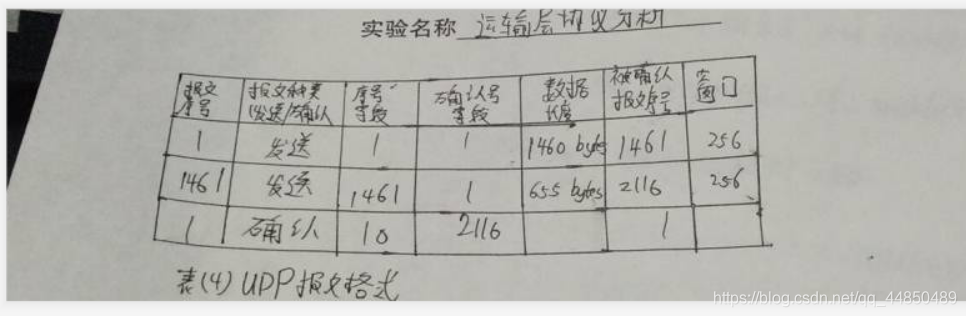 实验名称 运输层协议分析
报文序号 报文种类(发送/确认 序号字段 确认号字段 数据长度 被确认报文序号 窗口
1 发送 1 1 1460 bytes 1461 256
1461 发送 1461 1 655 bytes 2116 256
1 确认 10 2116 1
表(4) UDP报文格式
https://blog.csdn.net/qq_44850489